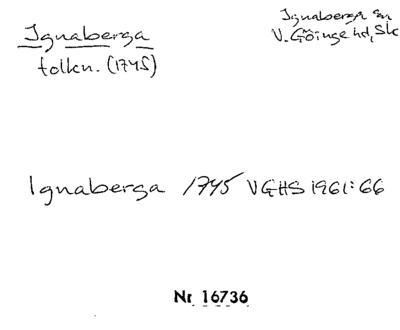 Ignaberga
tolkn. (1745)
Ignaberga sn
V. Göinge hd, Sk
Ignaberga 1745 VGHS 1961: 66
Nr 16736